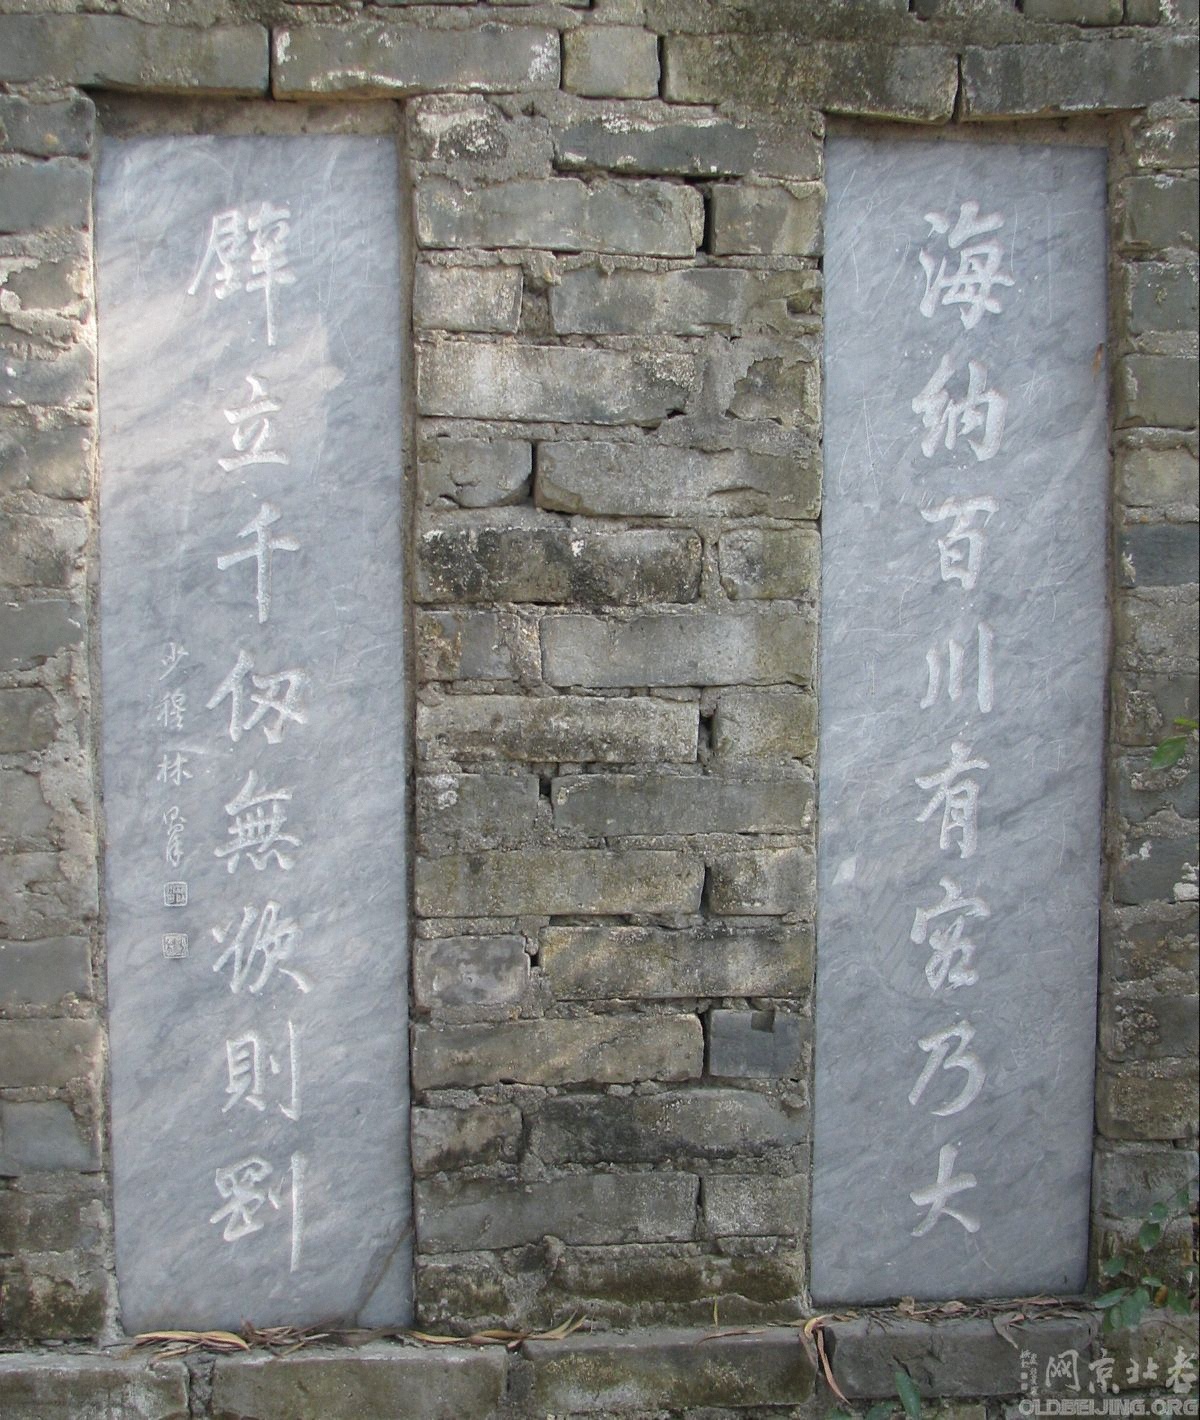 海纳百川有容乃大
壁立千仞無欲則剛
少穆林則徐
老北京网
OLDBEIJING.ORG